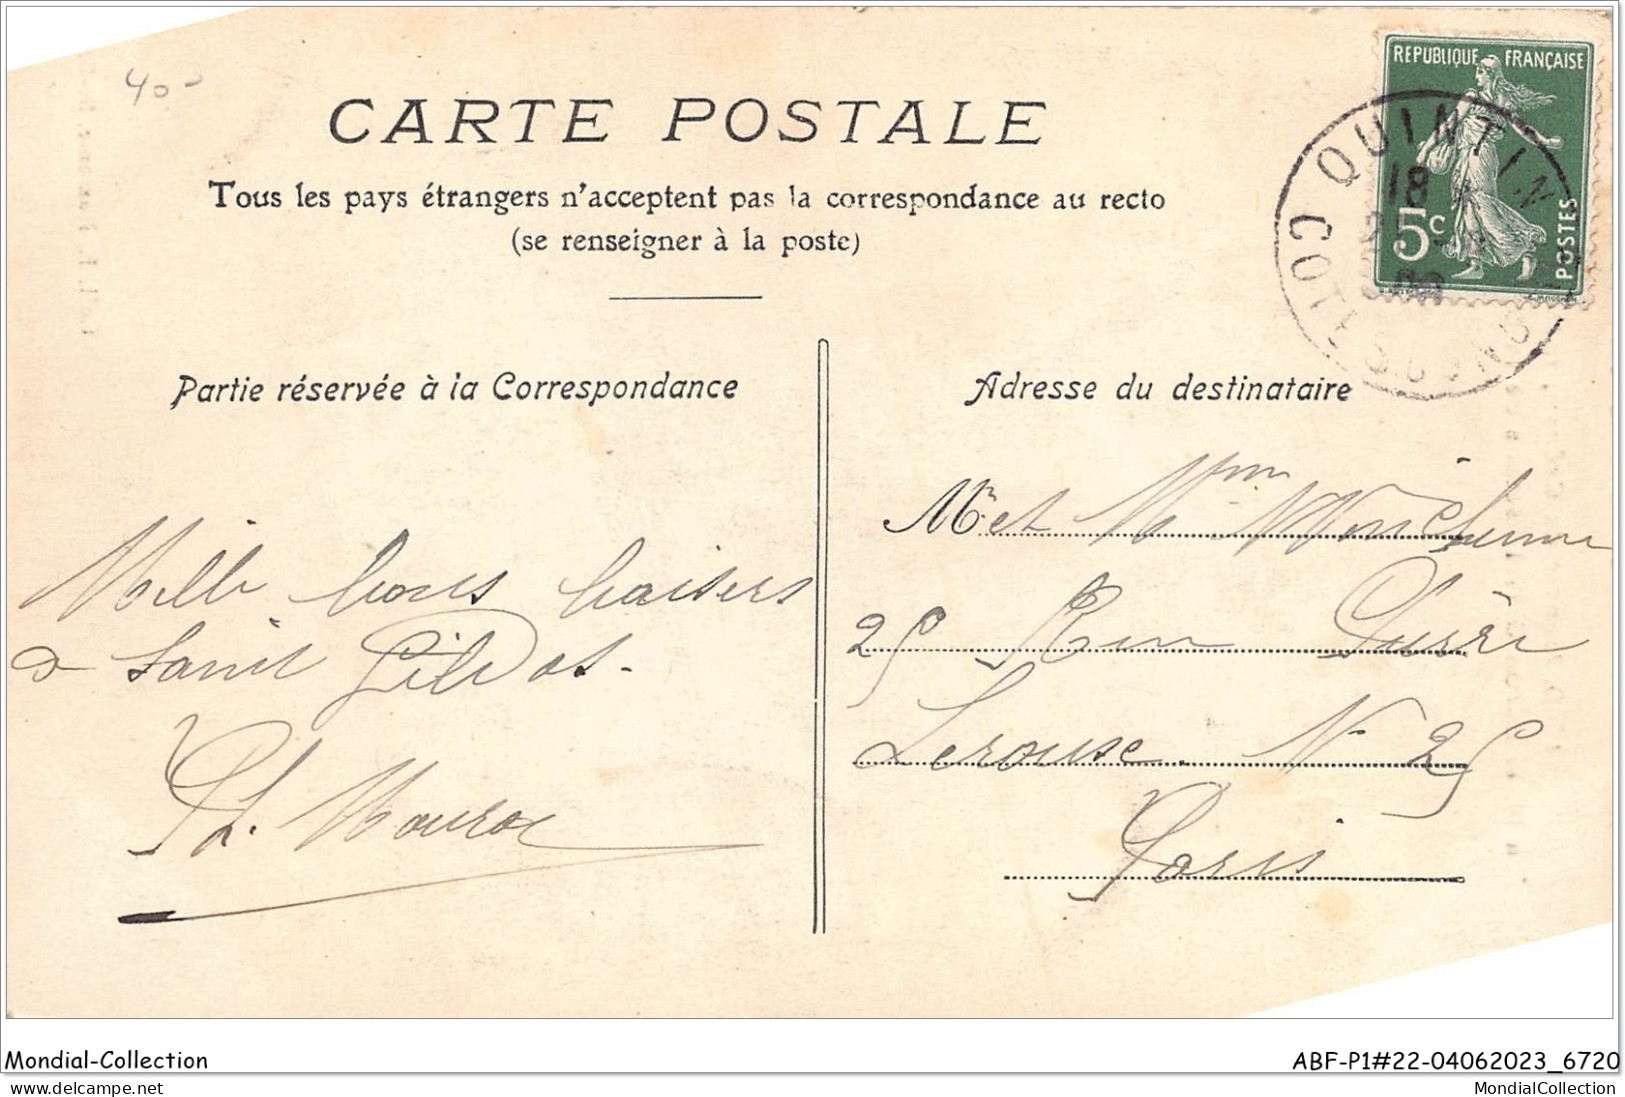 40-
CARTE POSTALE
Tous les pays étrangers n'acceptent pas la correspondance au recto
(se renseigner à la poste)
REPUBLIQUE FRANÇAISE
5c
POSTES
QUINTIN
18
COTES DU NORD
Partie réservée à la Correspondance
Adresse du destinataire
Mille bons baisers
Saint Gildas.
Mr et Mme
25 Rue
Lerouse. N 25
Paris
Mondial-Collection
ABF-P1#22-04062023_6720
www.delcampe.net
MondialCollection